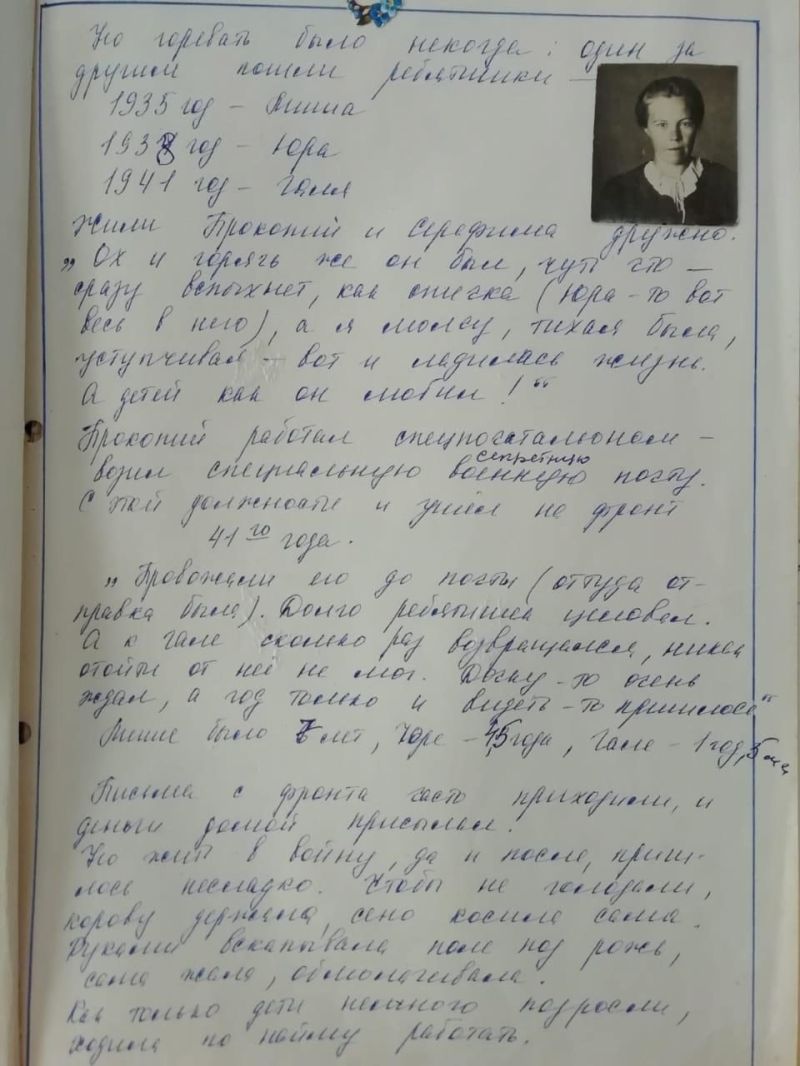 Но горевать было некогда: один за
другим пошли ребятишки —
1935 год – Миша
1938 год – Юра
1941 год – Галя
Жили Прокопий и Серафима дружно.
„Ох и горячь же он был, чуть что —
сразу вспыхнет, как спичка (Юра-то вот
весь в него), а я молчу, тихая была,
уступчивая – вот и ладилась жизнь.
А детей как он любил!“
Прокопий работал спецпочтальоном –
секретную
возил специальную военную почту.
С этой должности и ушёл на фронт
41го года.
„Провожали его до почты (оттуда от-
правка была). Долго ребятишек целовал.
А к Гале сколько раз возвращался, никак
отойти от неё не мог. Дочку-то очень
ждал, а год только и видеть-то пришлось“
Мише было 7 лет, Юре – 4,5 года, Гале – 1 год, 5 мц
Письма с фронта часто приходили, и
деньги домой присылал.
Но жить в войну, да и после, приш-
лось несладко. Чтобы не голодали,
корову держала, сено косила сама.
Руками вскапывала поле под рожь,
сама жала, обмолачивала.
Как только дети немного подросли,
ходила по найму работать.